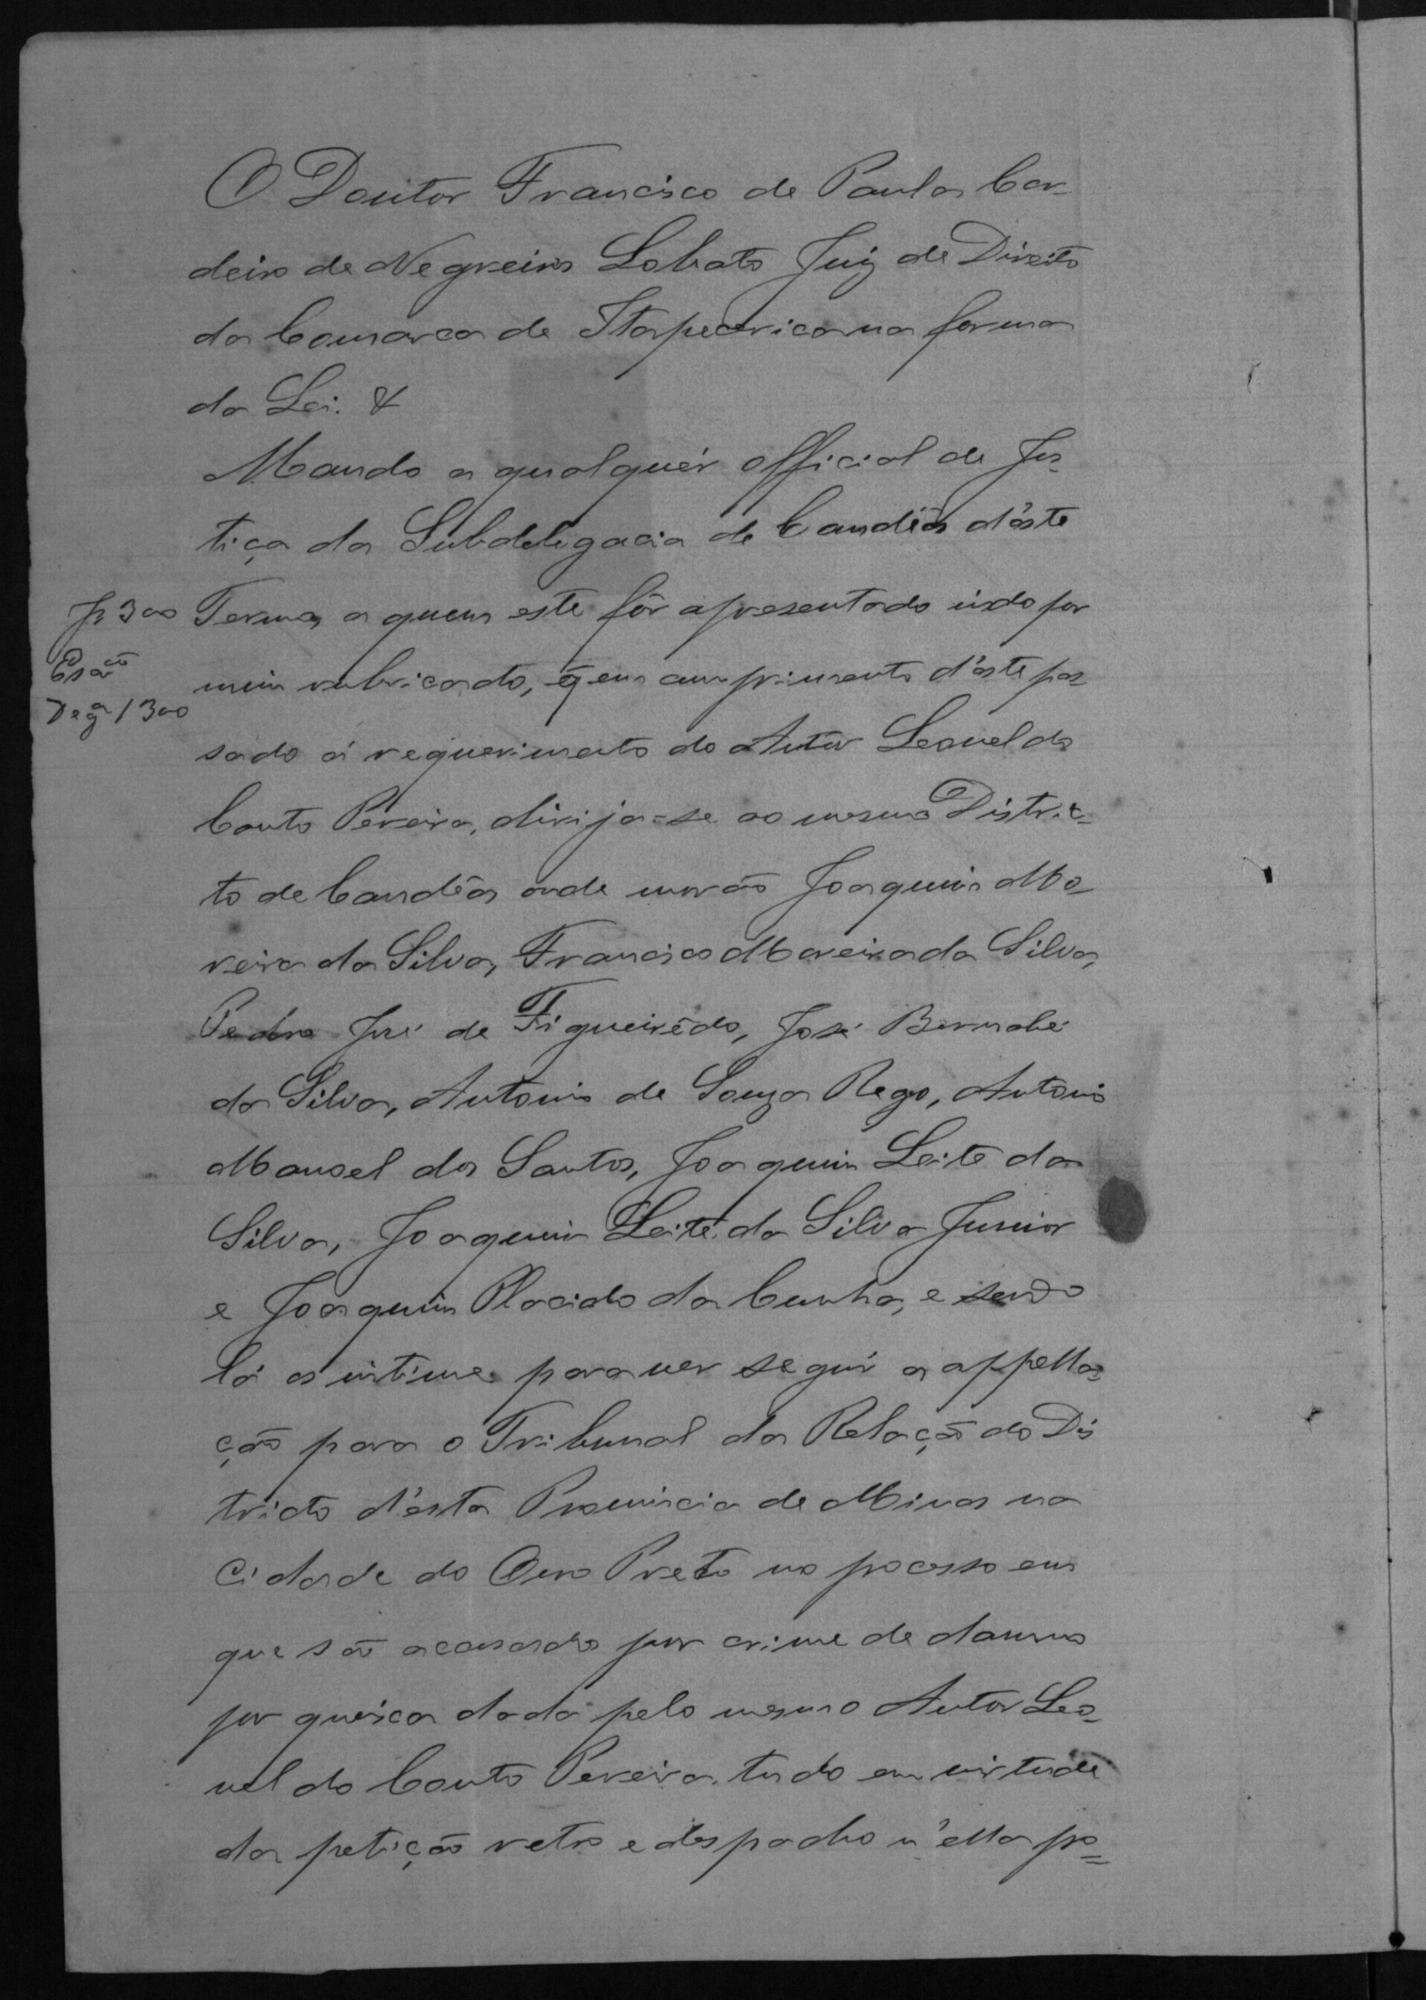 O Doutor Francisco de Paula Cor-
deiro de Negreiros Lobato Juiz de Direito
da Comarca de Itapecerica na forma
da Lei. &
Mando a qualquér official de Jus-
tiça da Subdelegacia de Candêas d'éste
Termo, a quem este fôr apresentado indo por
mim rubricado, q̃ em cumprimento d'éste pas-
sado á requerimento do Autor Leonel do
Couto Pereira, dirija-se ao mesmo Distric-
to de Candêas onde morão Joaquim Mo-
reira da Silva, Francisco Moreira da Silva,
Pedro José de Figueirêdo, José Bernabé
da Silva, Antonio de Souza Rego, Antonio
Manoel dos Santos, Joaquim Leite da
Silva, Joaquim Leite da Silva Junior
e Joaquim Placido da Cunha, e sendo
lá os intime para ver seguir a appella-
ção para o Tribunal da Relação do Dis
tricto d'ésta Provincia de Minas na
Cidade do Ouro Preto no pocesso em
que são acusados por crime de damno
por queixa dada pelo mesmo Autor Leo-
nel do Couto Pereira, tudo em virtude
da petição retro e despacho n'ella po-
300
1300